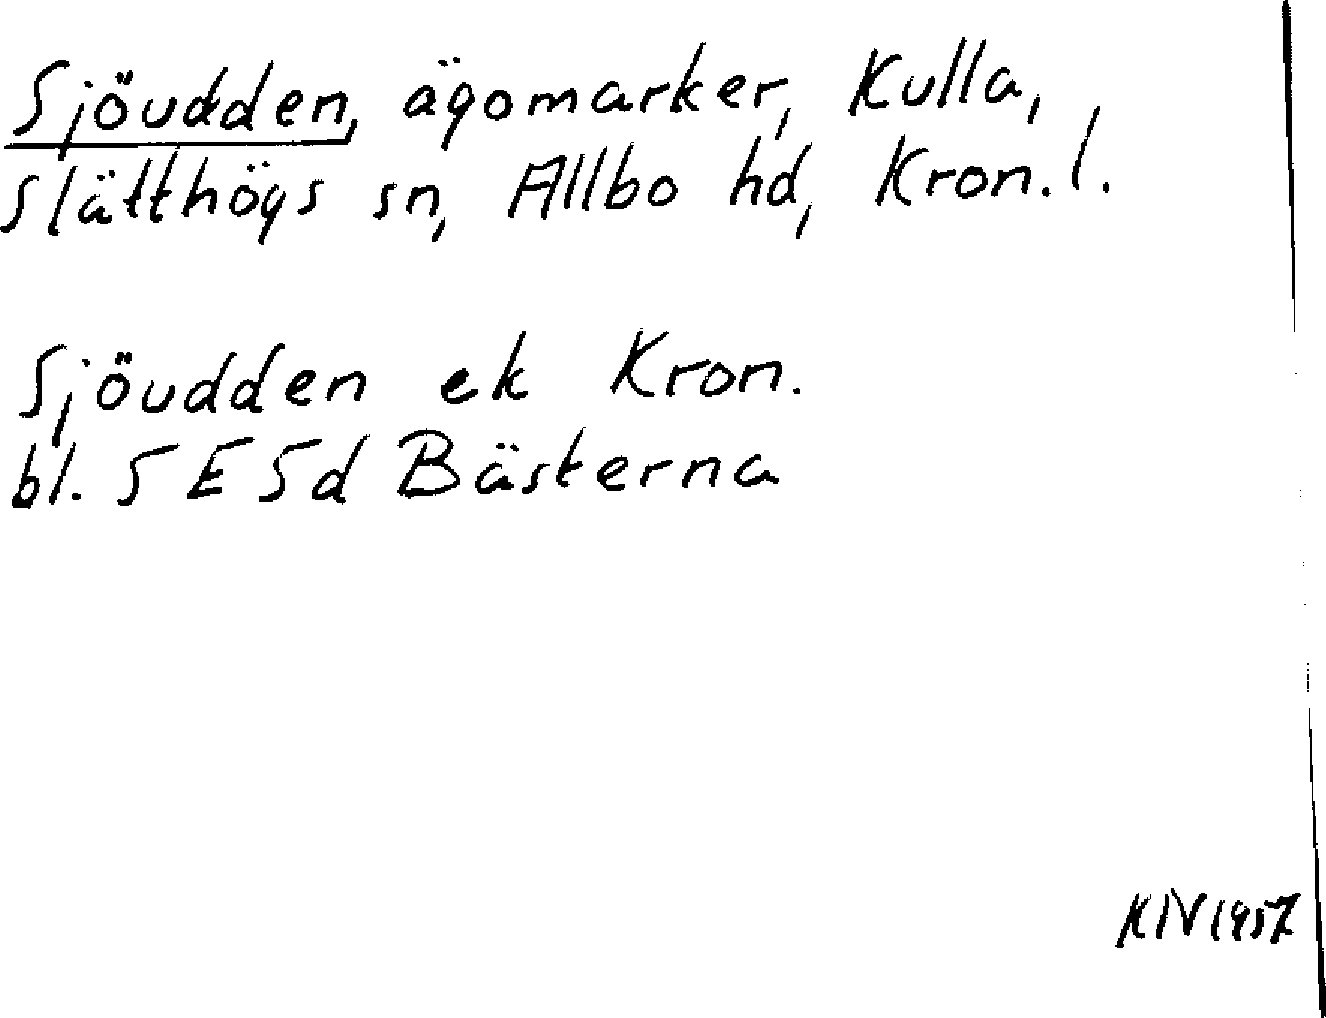 Sjöudden, ägomarker, Kulla,
Slätthögs sn, Allbo hd, Kron. l.
Sjöudden ek Kron.
bl. 5E5d Bästerna
KIV 1957